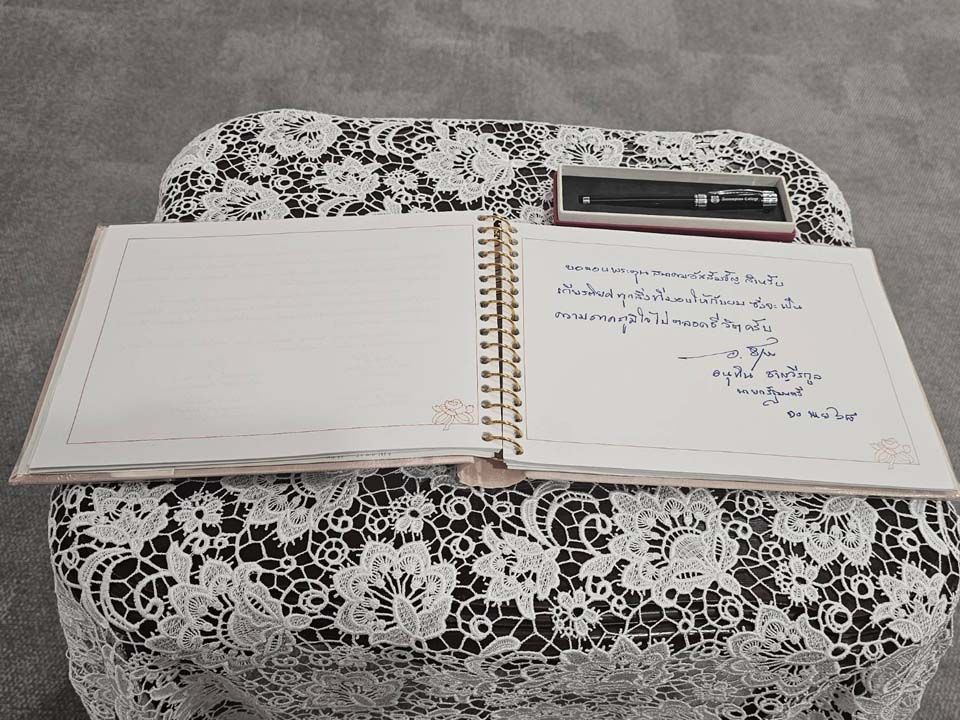 Assumption College
ขอขอบพระคุณ อัสสัมชัญ สำหรับ
เกียรติยศ ทุกสิ่งที่มอบให้กับผม ซึ่งจะเป็น
ความภาคภูมิใจไปตลอดชีวิตครับ
อนุทิน ชาญวีรกูล
นายกรัฐมนตรี